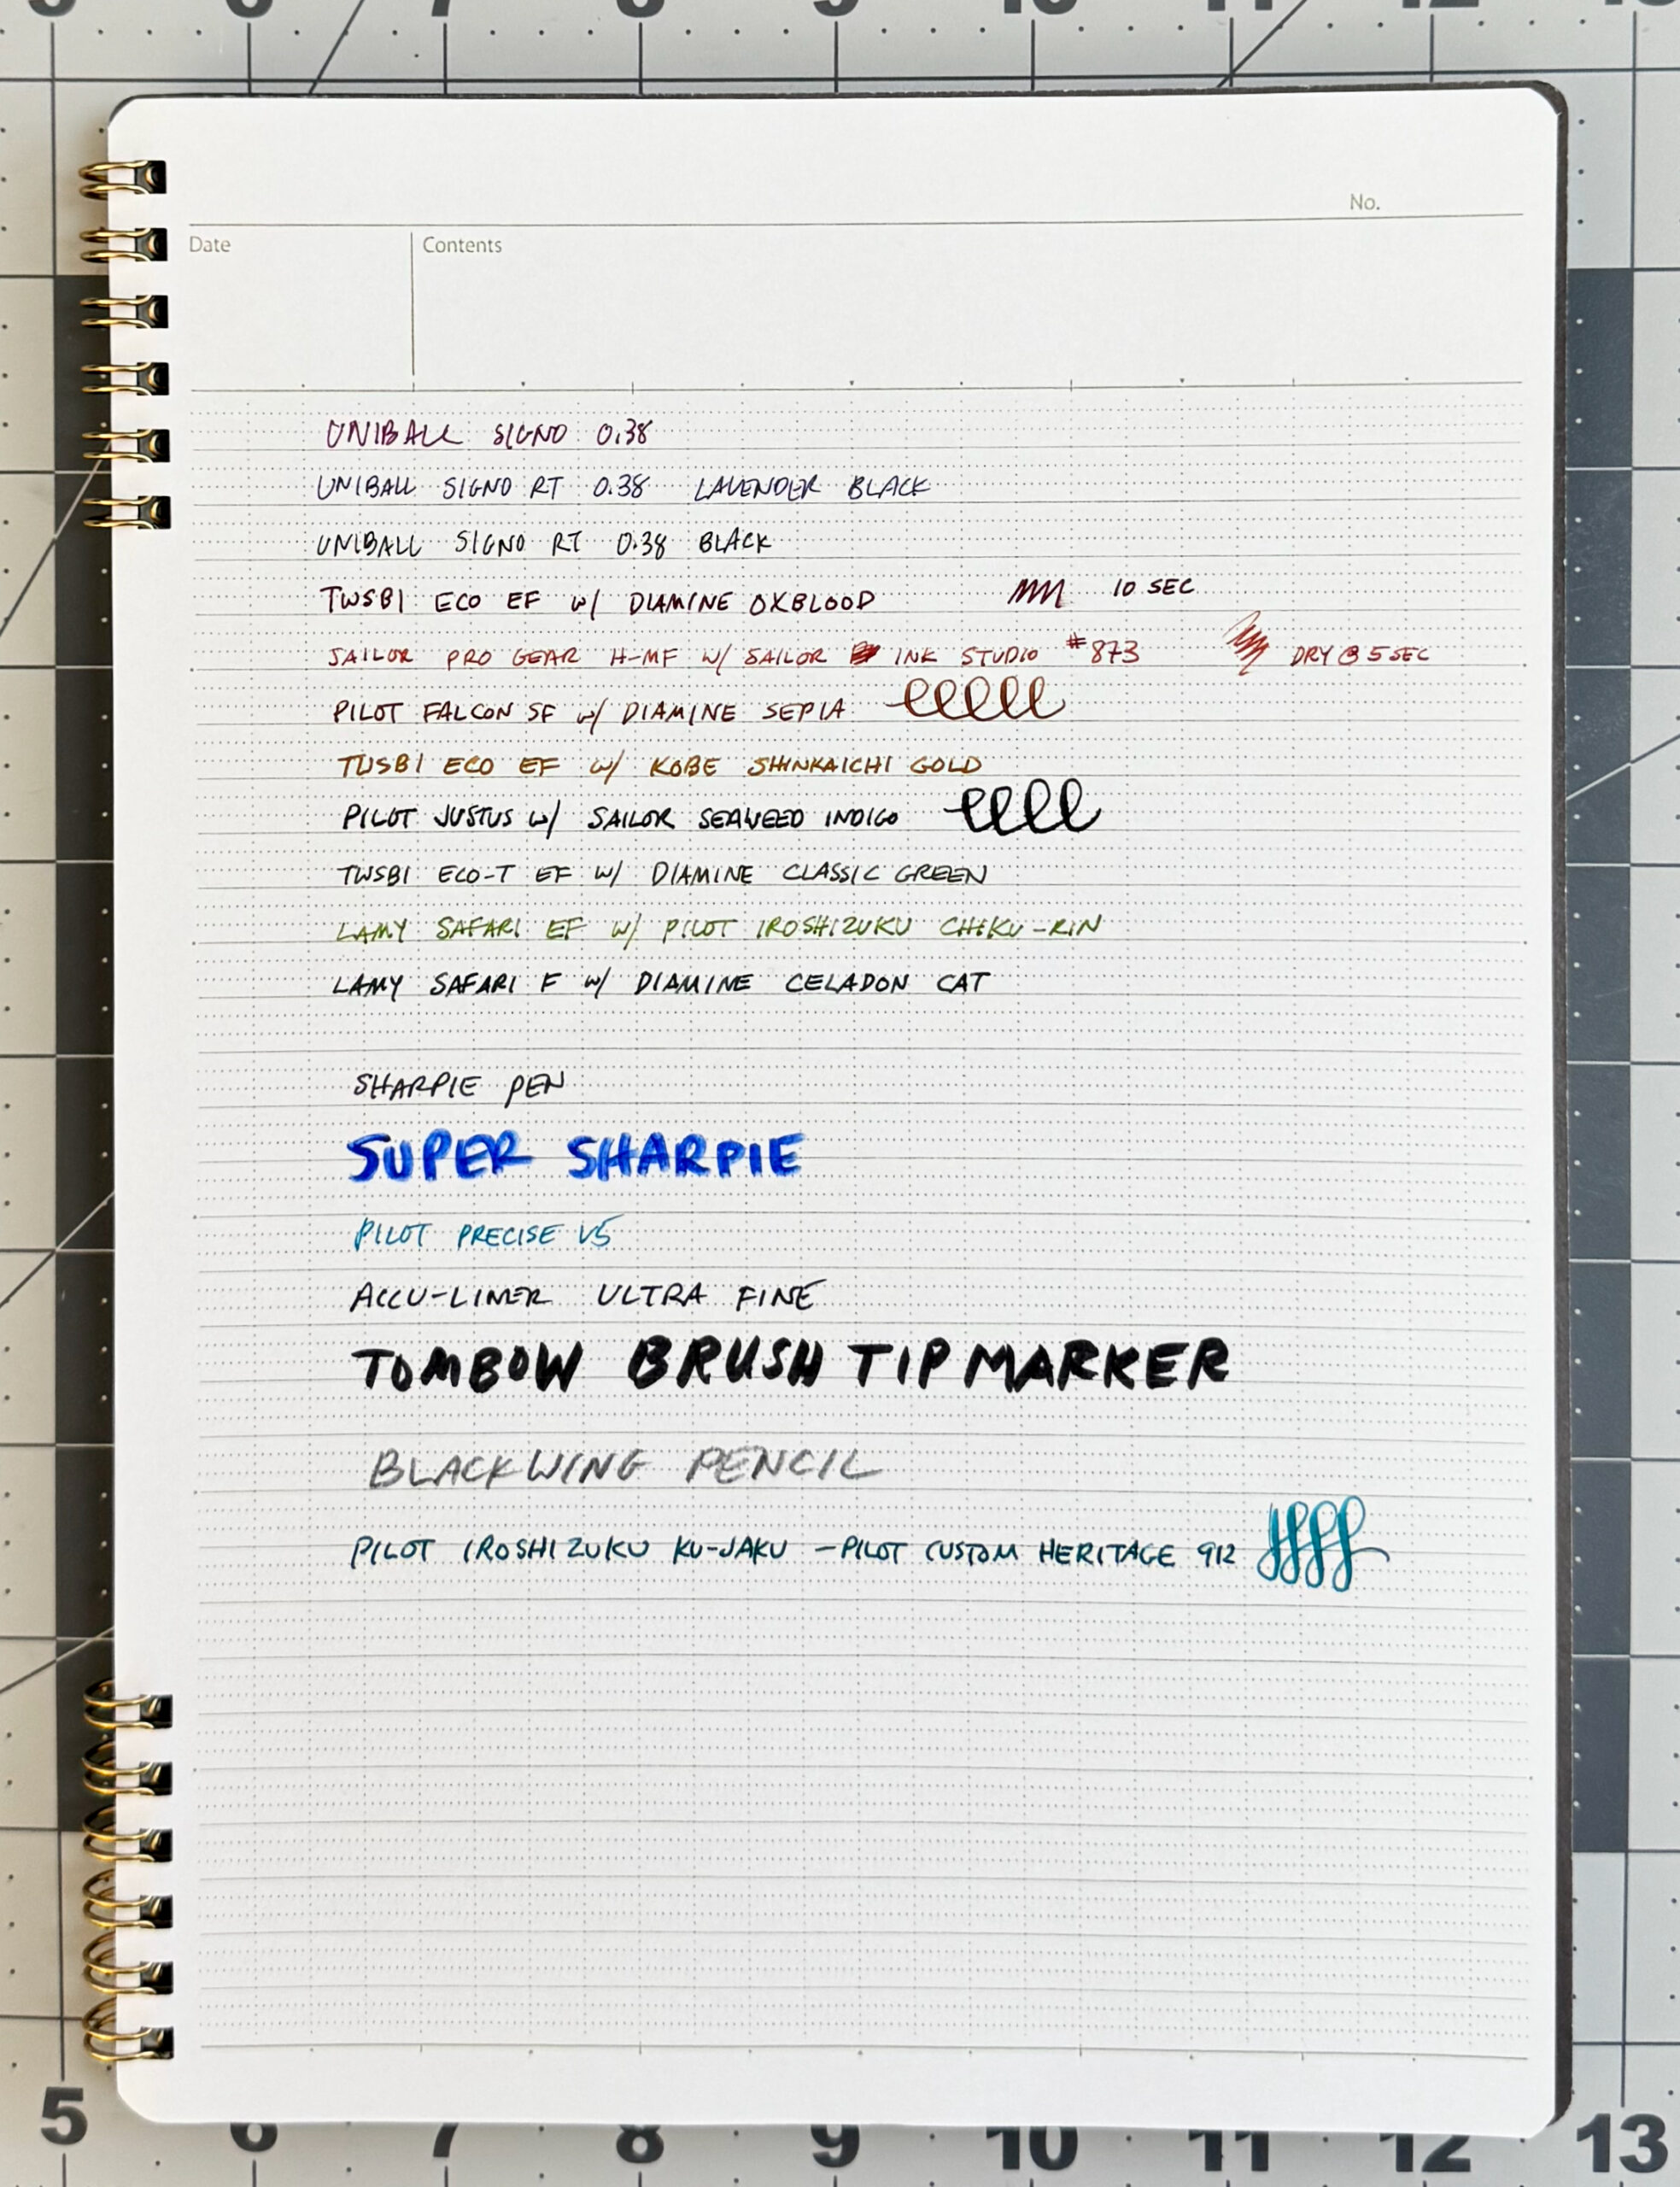 No.
Date Contents
UNIBALL SIGNO 0.38
UNIBALL SIGNO RT 0.38 LAVENDER BLACK
UNIBALL SIGNO RT 0.38 BLACK
TWSBI ECO EF W/ DIAMINE OXBLOOD 10 SEC
SAILOR PRO GEAR H-MF W/ SAILOR INK STUDIO #873 DRY @ 5 SEC
PILOT FALCON SF W/ DIAMINE SEPIA
TWSBI ECO EF W/ KOBE SHINKAICHI GOLD
PILOT JUSTUS W/ SAILOR SEAWEED INDIGO
TWSBI ECO-T EF W/ DIAMINE CLASSIC GREEN
LAMY SAFARI EF W/ PILOT IROSHIZUKU CHIKU-RIN
LAMY SAFARI F W/ DIAMINE CELADON CAT
SHARPIE PEN
SUPER SHARPIE
PILOT PRECISE V5
ACCU-LINER ULTRA FINE
TOMBOW BRUSH TIP MARKER
BLACKWING PENCIL
PILOT IROSHIZUKU KU-JAKU - PILOT CUSTOM HERITAGE 912
5 6 7 8 9 10 11 12 13